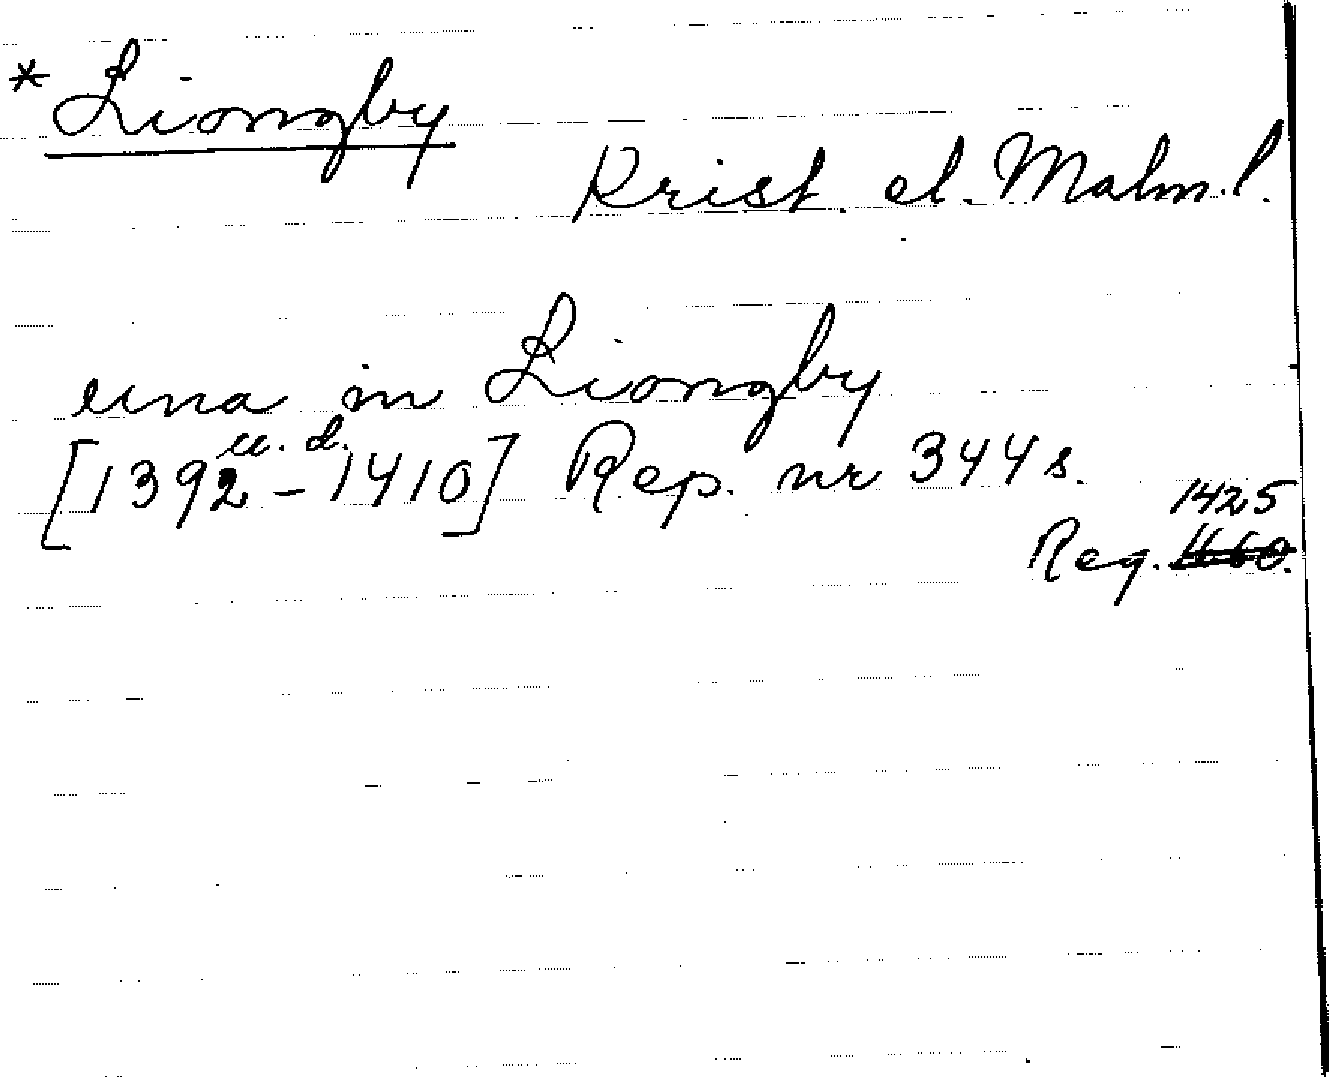 * Liongby
Krist. el. Malm. l.
una in Liongby
u. d.
[1392 - 1410] Rep. nr 344 s.
1425
Reg.